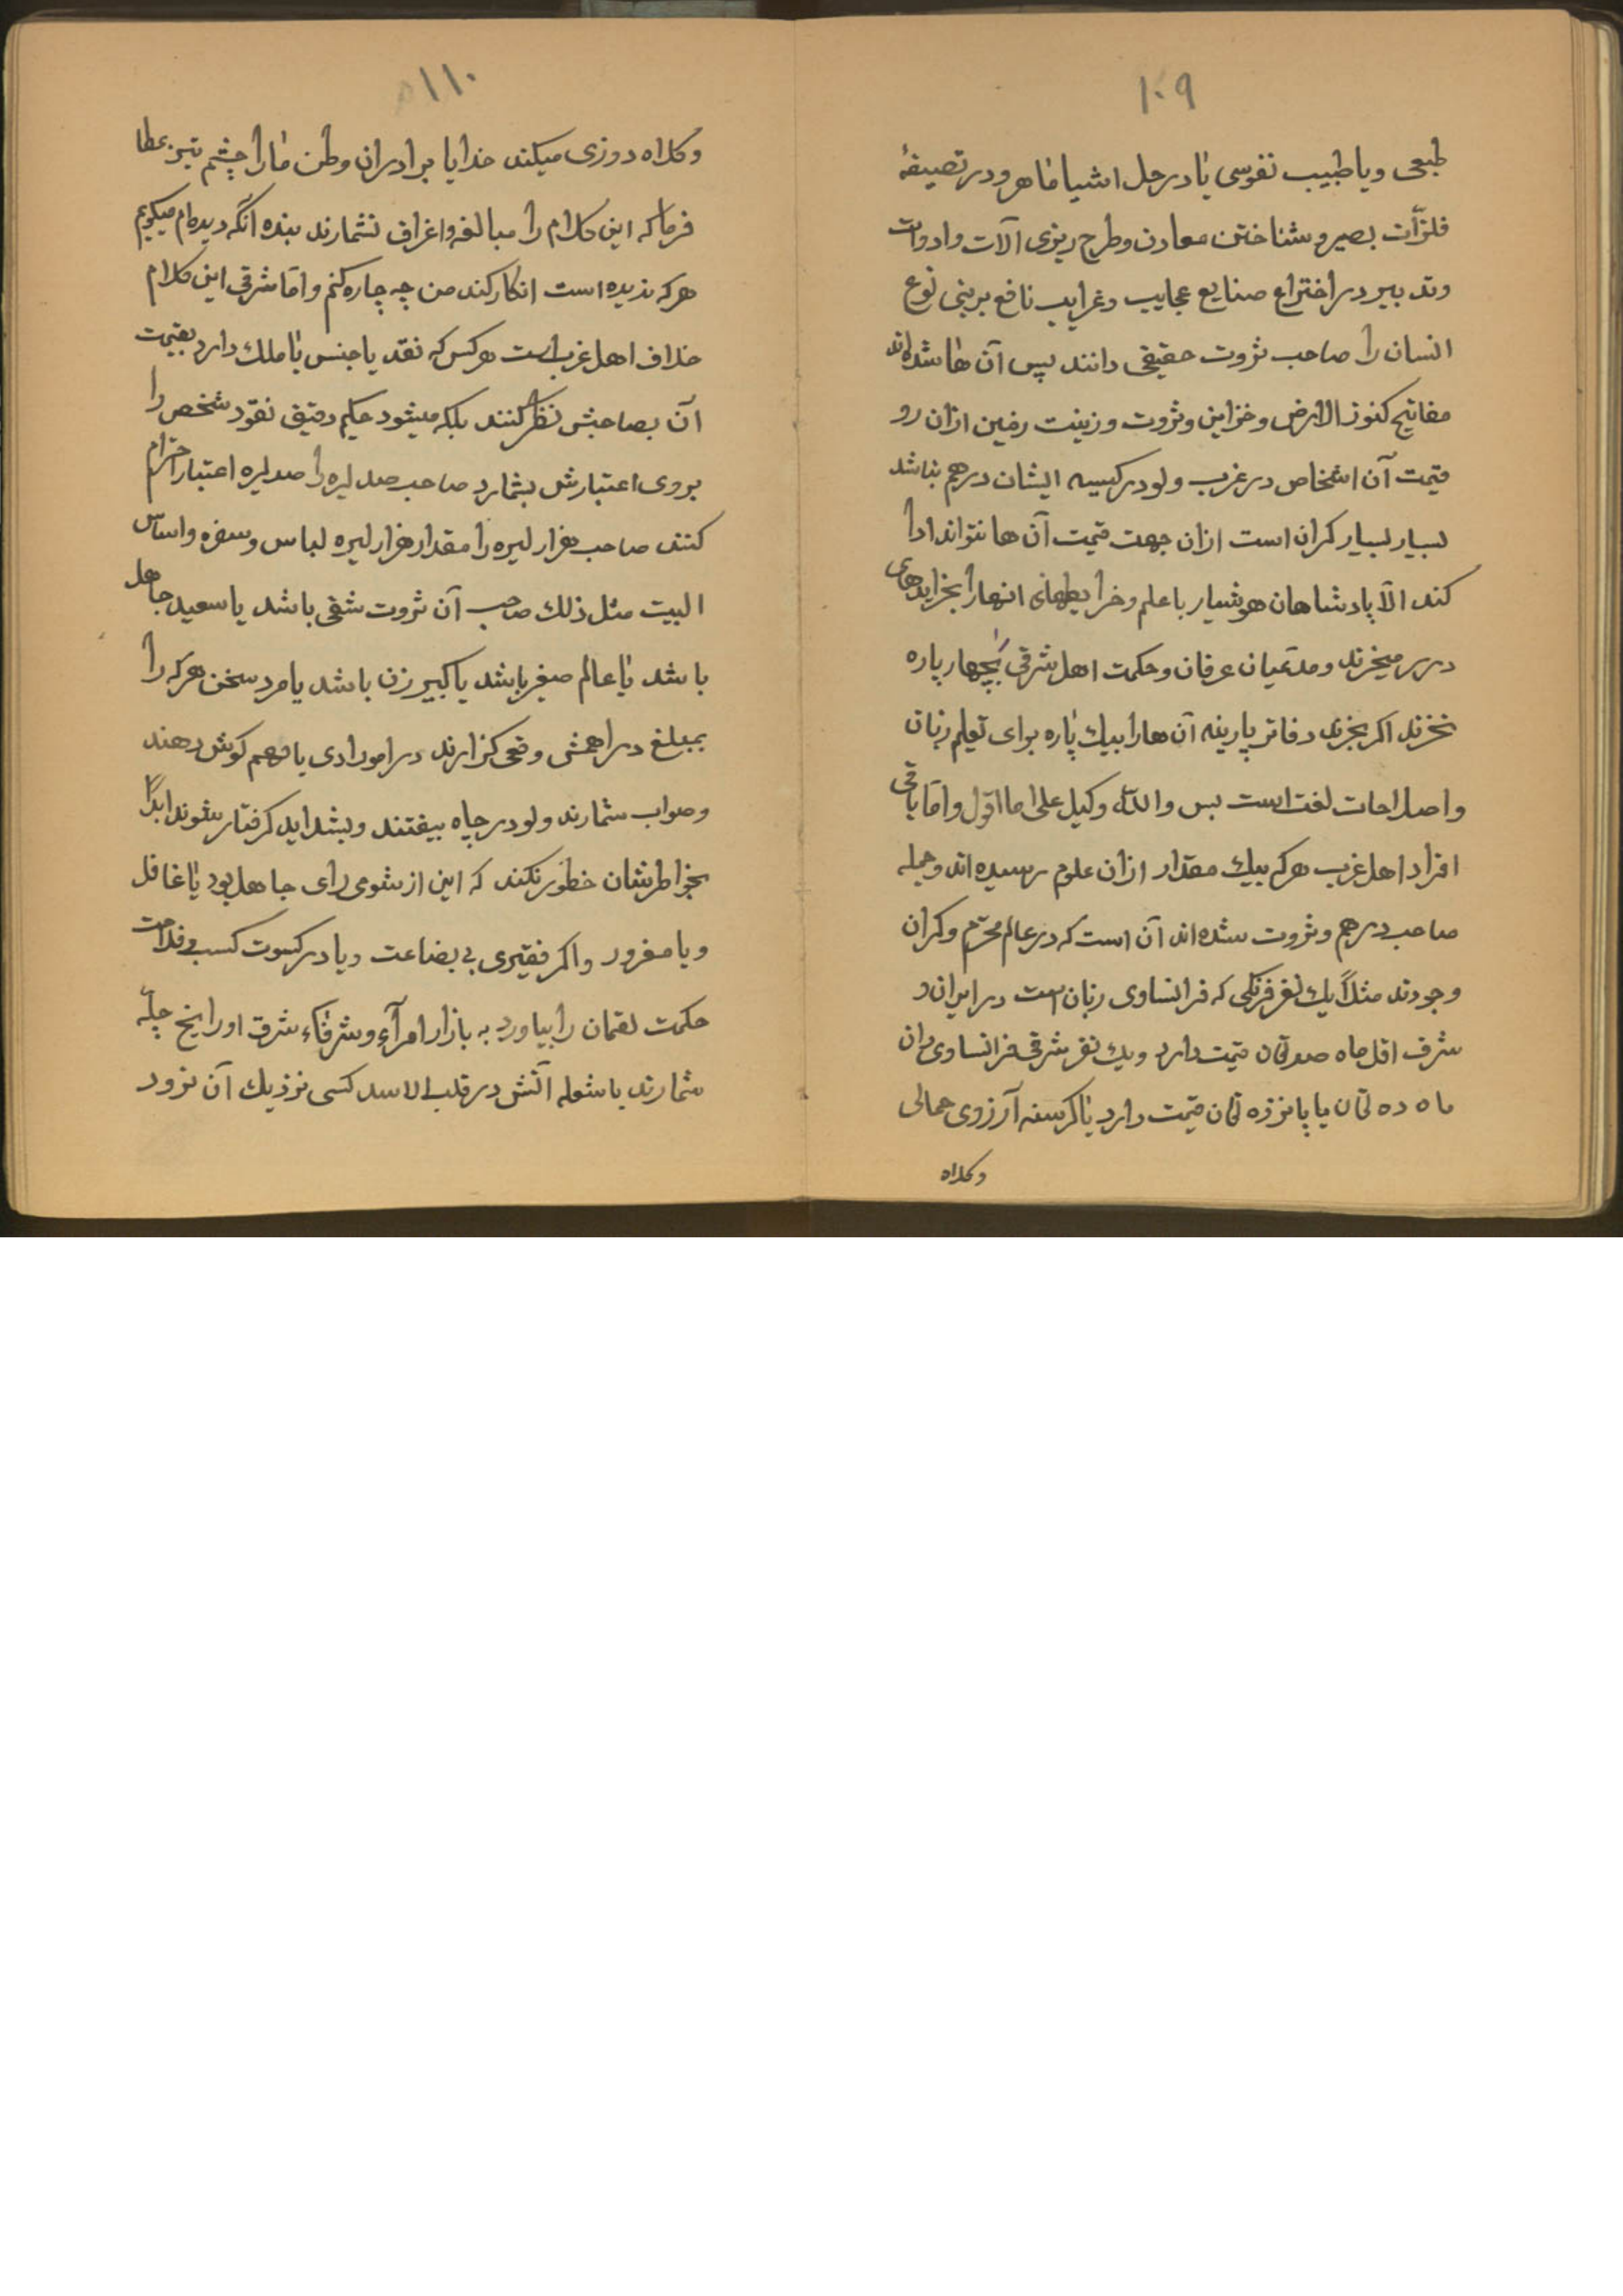 ۱۰۹
طبعی ویا طبیب نفوسی یا در حل اشیا ماهر و در تصیفهٔ
فلزّات بصیر و شناختن معادن و طرح ریزی آلات وادوات
وتدبیر در اختراع صنایع عجایب وغرایب نافع بر بنی نوع
انسان را صاحب ثروت حقیقی دانند پس آن ها شده‌اند
مفاتیح کنوز الارض وخزاین وثروت وزینت زمین ازان رو
قیمت آن اشخاص در غرب ولو در کیسه ایشان درهم نباشد
بسیار بسیار کران است ازان جهت قیمت آن ها نتواند ادا
کند الّا پادشاهان هوشیار با علم وخرایطهای انها را بخزاینهای
در بر میخرند ومدّعیان عرفان وحکمت اهل شرق بچهار پاره
نخرند اکر بخرند دفاتر پارینه آن هارا بیك پاره برای تعلم زبان
واصلاحات لغت است بس والله وکیل علی ما اقول وامّا باقی
افراد اهل غرب هرکه بیك مقدار ازان علوم رسیده اند وجمله
صاحب درهم وثروت شده‌اند آن است که در عالم محترم وکران
وجودند مثلاً یك نفر فرنکی که فرانساوی زبان است در ایران و
شرق اقل ماه صد تمان قیمت دارد ویك نفر شرقی فرانساوی دان
ماه ده تمان یا پانزده تمان قیمت دارد یا کرسنه آرزوی حمالی
وکلاه
۱۱۰
وکلاه دوزی میکند خدایا برادران وطن ما را چشم تیز عطا
فرما که این کلام را مبالغه واغراق نشمارند بنده آنکه دیده‌ام میکویم
هرکه ندیده است انکار کند من چه چاره کنم وامّا شرقی این کلام
خلاف اهل غرب است هرکس که نقد یا جنس یا ملك دارد بقیمت
آن بصاحبش نظر کنند بلکه میشود حکیم دقیق نقود شخص را
بروی اعتبارش بشمارد صاحب صد لیره را صد لیره اعتبار احترام
کنند صاحب هزار لیره را مقدار هزار لیره لباس وسفره واساس
البیت مثل ذلك صاحب آن ثروت شقی باشد یا سعید جاهل
باشد یا عالم صغیر باشد یا کبیر زن باشد یا مرد سخن هرکه را
بمبلغ دراهمش وقعی کزارند در امور ادی با فهم کوش دهند
وصواب شمارند ولو در چاه بیفتند وبشداید کرفتار شوند ابداً
بخواطرشان خطور نکند که این از شومی رای جاهل بود یا غافل
ویا مغرور واکر فقیری بی بضاعت ویا در کسوت کسب وفلاحت
حکمت لقمان را بیاورد به بازار امرآء وشرفاء شرق او را یخ چلّه
شمارند با شعله آتش در قلب الاسد کسی نزدیك آن نرود